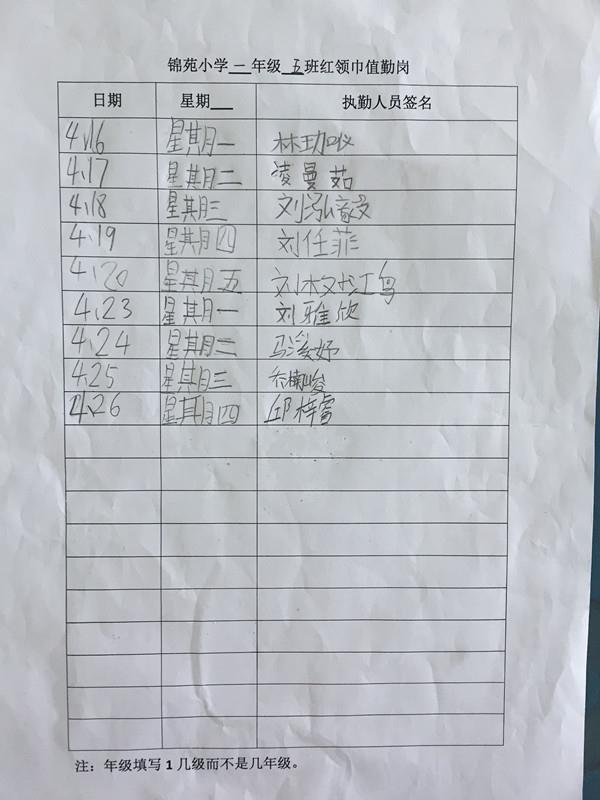 锦苑小学一年级五班红领巾值勤岗
日期 星期 执勤人员签名
4.16 星期一 林珈仪
4.17 星期二 凌曼茹
4.18 星期三 刘泓毅
4.19 星期四 刘任菲
4.20 星期五 刘
4.23 星期一 刘雅欣
4.24 星期二 马滢妤
4.25 星期三 乔楠峻
4.26 星期四 邱梓睿
注：年级填写1几级而不是几年级。